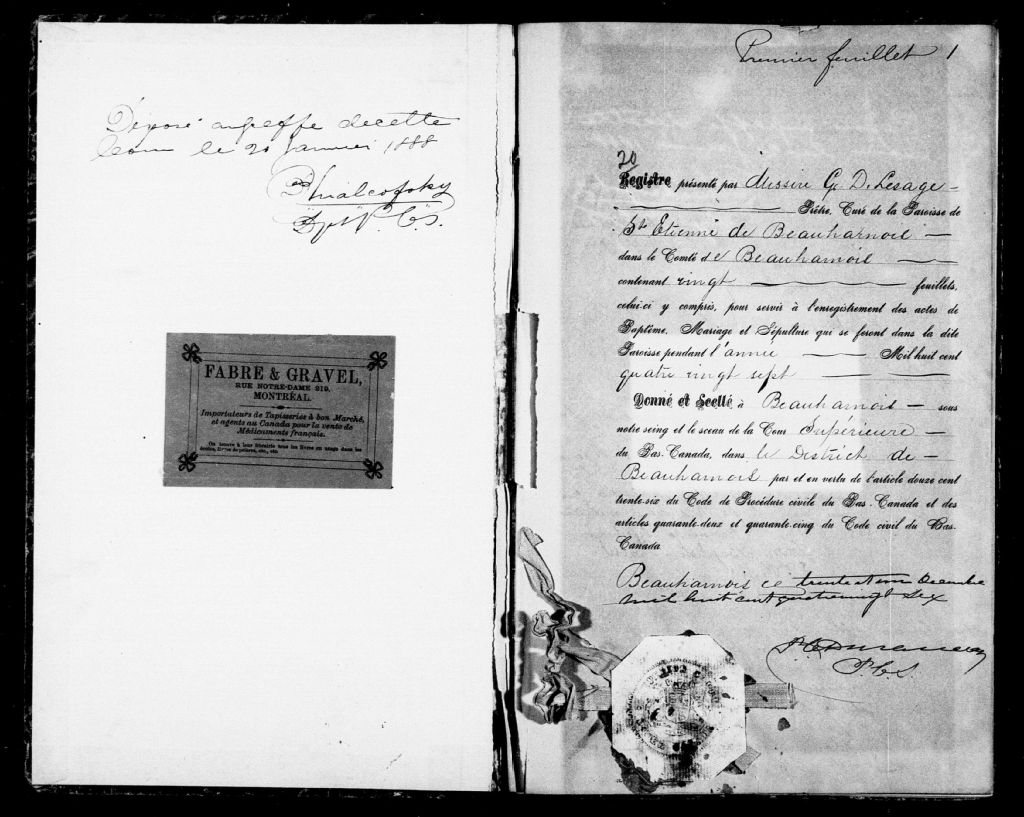 Déposé au greffe de cette
Cour le 20 Janvier 1888
FABRE & GRAVEL,
RUE NOTRE-DAME 219,
MONTRÉAL.
Importateurs de Tapisseries à bon Marché,
et agents au Canada pour la vente de
Médicaments français.
On trouve à leur librairie tous les livres en usage dans les
écoles, livres de prières, etc., etc.
Premier feuillet 1
20
Registre présenté par Messire G. D. Lesage
Prêtre, Curé de la Paroisse de
St. Etienne de Beauharnois
dans le Comté de Beauharnois
contenant vingt feuillets,
celui-ci y compris, pour servir à l'enregistrement des actes de
Baptême, Mariage et Sépulture qui se feront dans la dite
Paroisse pendant l'année Mil huit cent
quatre vingt sept
Donné et Scellé à Beauharnois sous
notre seing et le sceau de la Cour Supérieure
du Bas-Canada, dans le District de
Beauharnois par et en vertu de l'article douze cent
trente-six du Code de Procédure civile du Bas-Canada et des
articles quarante-deux et quarante-cinq du Code civil du Bas-
Canada
Beauharnois ce trente et un Decembre
mil huit cent quatre vingt Six
P.C.S.